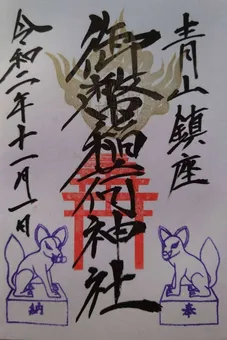 青山鎮座
御幣稲荷神社
令和二年十一月一日
奉
納